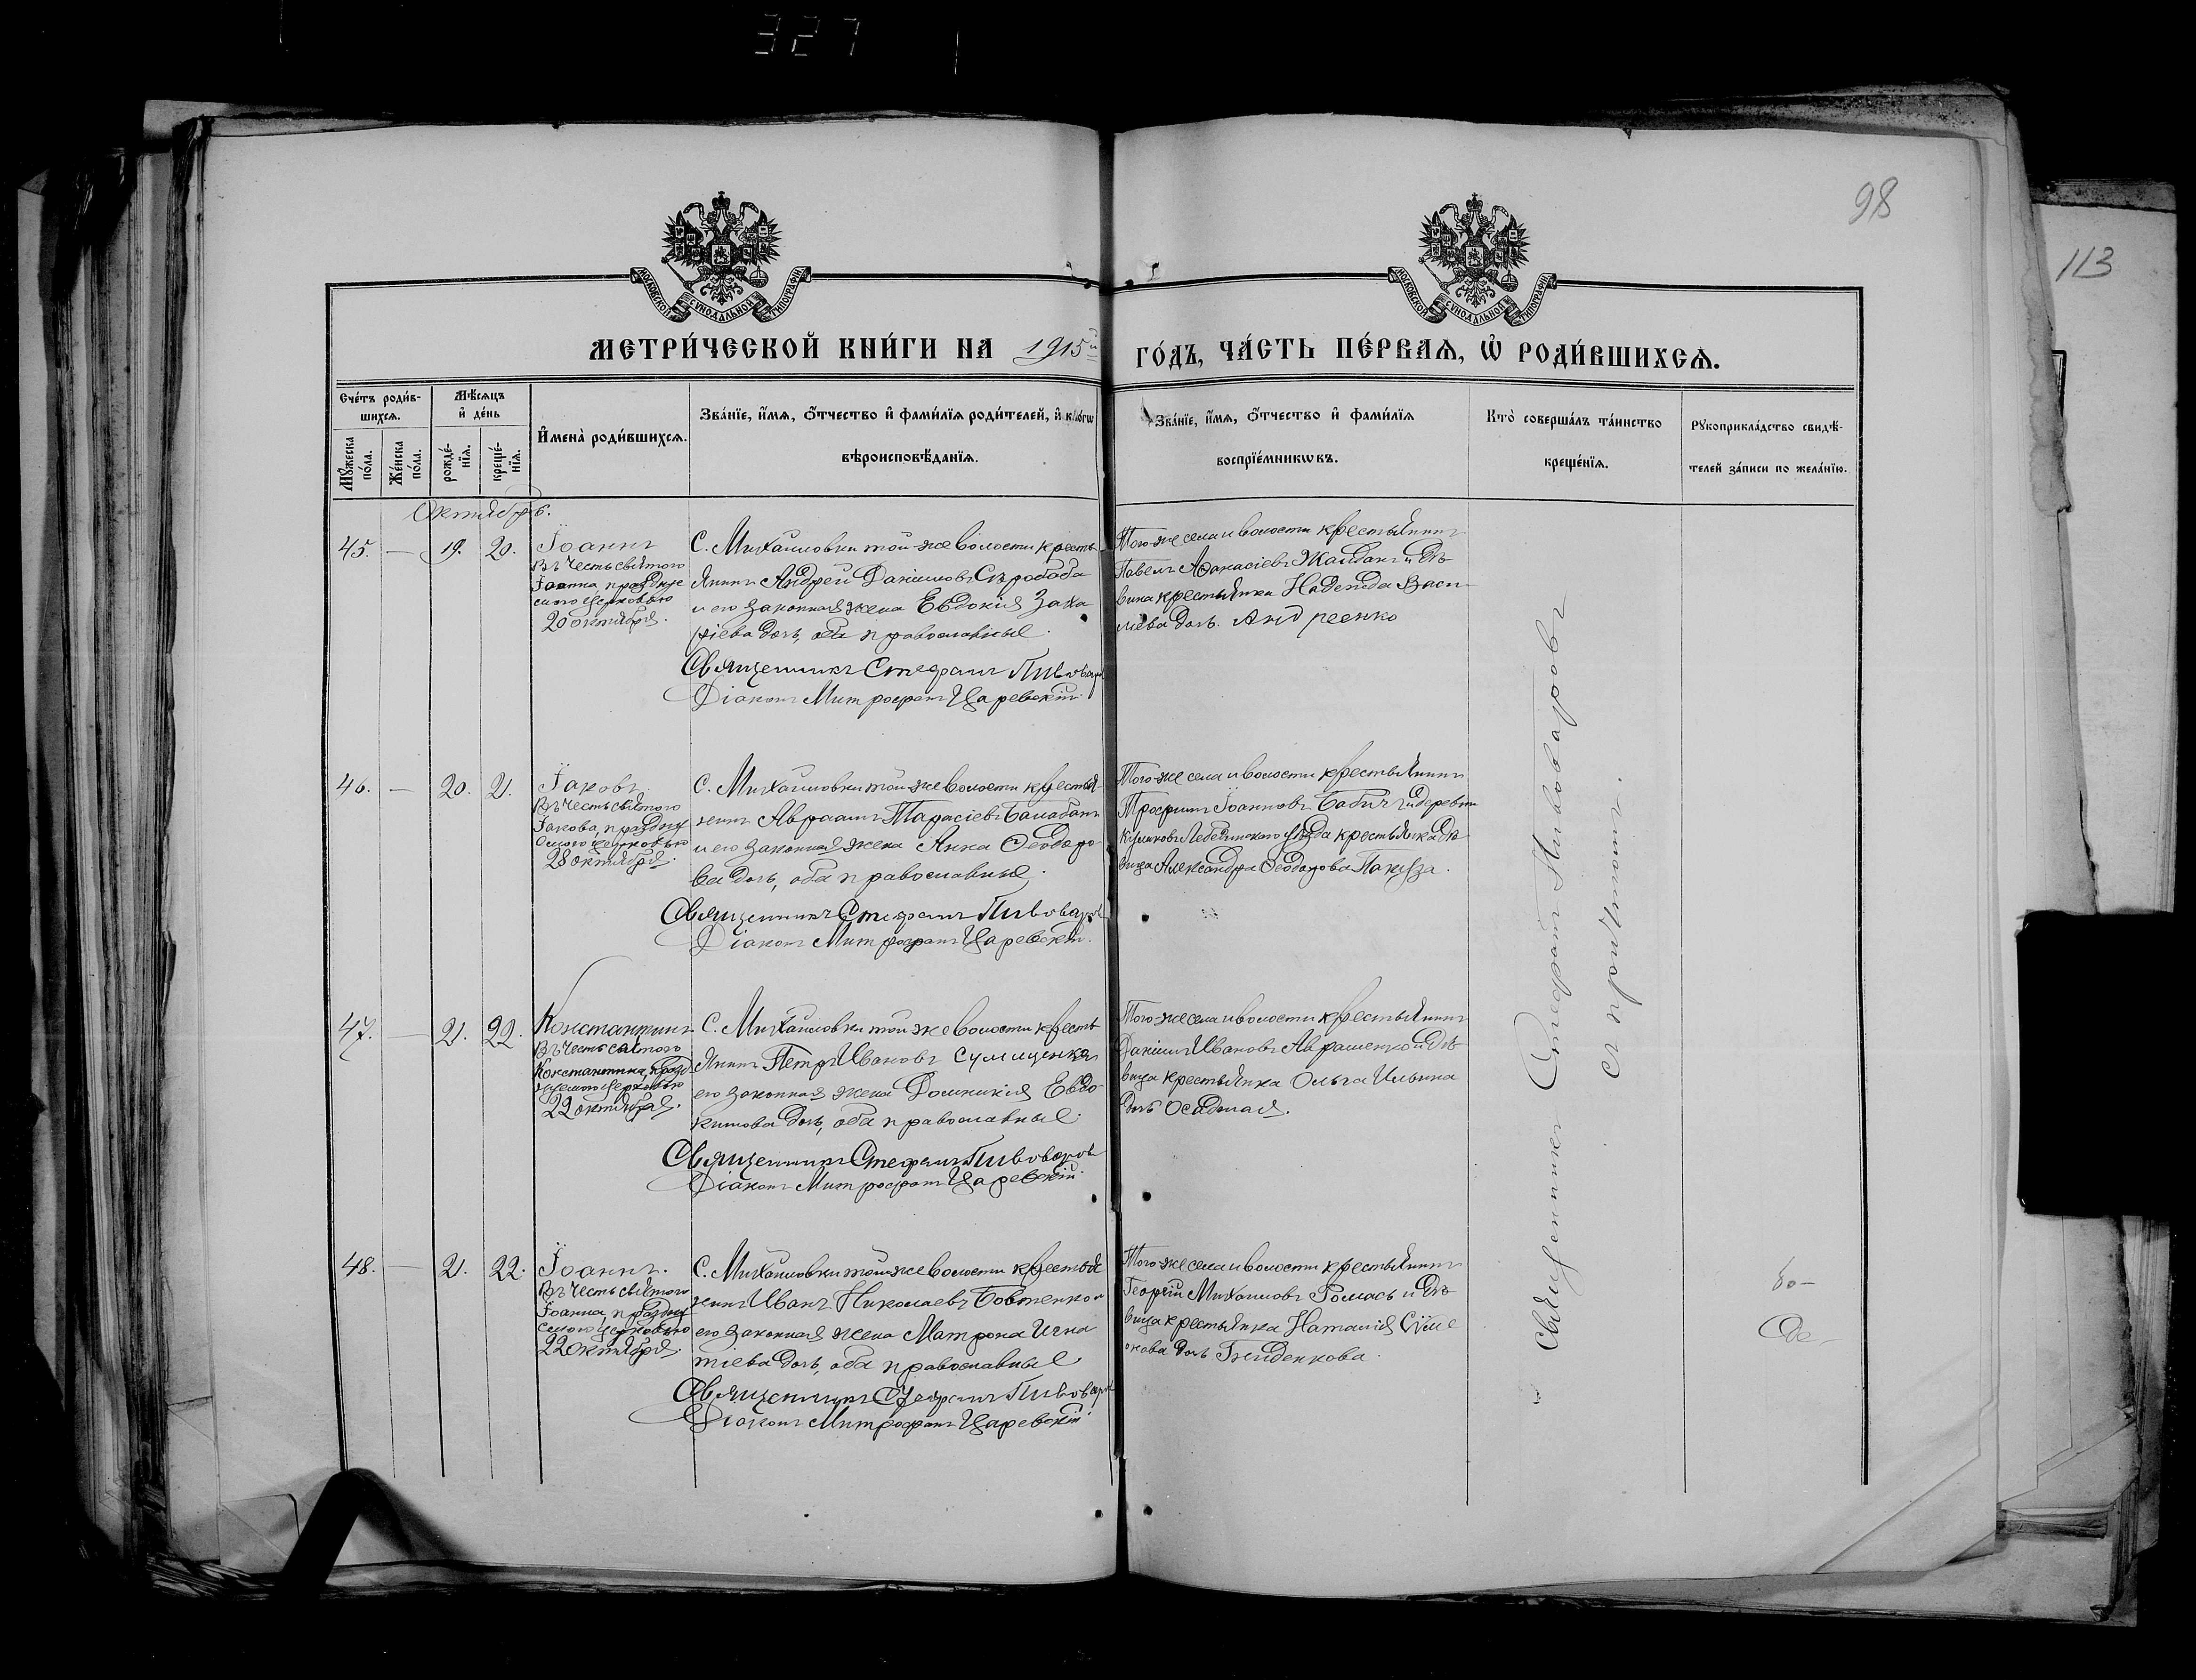 327
98
113
МОСКОВСКОЙ СѴНОДАЛЬНОЙ ТИПОГРАФІИ
МОСКОВСКОЙ СѴНОДАЛЬНОЙ ТИПОГРАФІИ
МЕТРИ́ЧЕСКОЙ КНИ́ГИ НА 1915й ГО́ДЪ, ЧА́СТЬ ПЕ́РВАЯ, Ѡ҆ РОДИ́ВШИХСЯ.
Сче́тъ роди́в-
шихся.
Мѣ́сяцъ
и҆ де́нь
Мꙋ́жеска по́ла.
Же́нска по́ла.
рожде́-
нїя.
креще́-
нїя.
И҆мена̀ роди́вшихся.
Зва́нїе, и҆́мя, ѻ҆́тчество и҆ фами́лїя роди́телей, и҆ како́гѡ
вѣроисповѣ́данїя.
Зва́нїе, и҆́мя, ѻ҆́тчество и҆ фами́лїя
воспрїе́мникѡвъ.
Кто̀ соверша́лъ та́инство
креще́нїя.
Рꙋкоприкла́дство свидѣ́-
телей за́писи по жела́нїю.
Октябрь.
45. — 19. 20.
Іоаннъ
Въ честь святого
Іоанна, праздкуе
мого церковью
20 октября.
С. Михайловки той-же волости кресть
янинъ Андрей Даніиловъ Скробаба
и его законная жена Евдокія Заха
ріева дочь, оба православные.
Священникъ Стефанъ Пивовар
Діаконъ Митрофанъ Царевскій.
Того-же села и волости крестьянинъ
Павелъ Аѳанасіевъ Жолданъ и дѣ
вица крестьянка Надежда Васи
лиева дочь. Андреенко
46. — 20. 21.
Іаковъ.
Въ честь святого
Іакова, праздну
емого церковью
28 октября.
С. Михайловки той-же волости крестья
нинъ Авраамъ Тарасіевъ Балабанъ
и его законная жена Анна Ѳеодоро
ва дочь, оба православные.
Священникъ Стефанъ Пивоваров
Діаконъ Митрофанъ Царевскій.
Того-же села и волости крестьянинъ
Трофимъ Іоанновъ Бабичъ и деревни
Куликовъ Лебединского уѣзда крестьянка дѣ
вица Александра Ѳеодорова
47. — 21. 22.
Константинъ.
Въ честь святого
Константина, празд
нуемого церковью
22 октября.
С. Михайловки той-же волости кресть
янинъ Петръ Ивановъ
его законная жена Домникія Евдо
кимова дочь, оба православные.
Священникъ Стефанъ Пивоваров
Діаконъ Митрофанъ Царевскій.
Того-же села и волости крестьянинъ
Даніилъ Ивановъ Аврашенко и дѣ
вица крестьянка Ольга Ильина
дочь Осадчая.
48. — 21. 22.
Іоаннъ.
Въ честь святого
Іоанна, праздну
емого церковью
22 октября.
С. Михайловки той-же волости крестья
нинъ Иванъ Николаевъ Бовтенко и
его законная жена Матрона Игна
тіева дочь, оба православные.
Священникъ Стефанъ Пивовар
Діаконъ Митрофанъ Царевскій.
Того-же села и волости крестьянинъ
Георгій Михаиловъ Ромась и дѣ
вица крестьянка Наталія Симе
онова дочь
Священникъ Стефанъ Пивоваровъ
съ причтомъ.